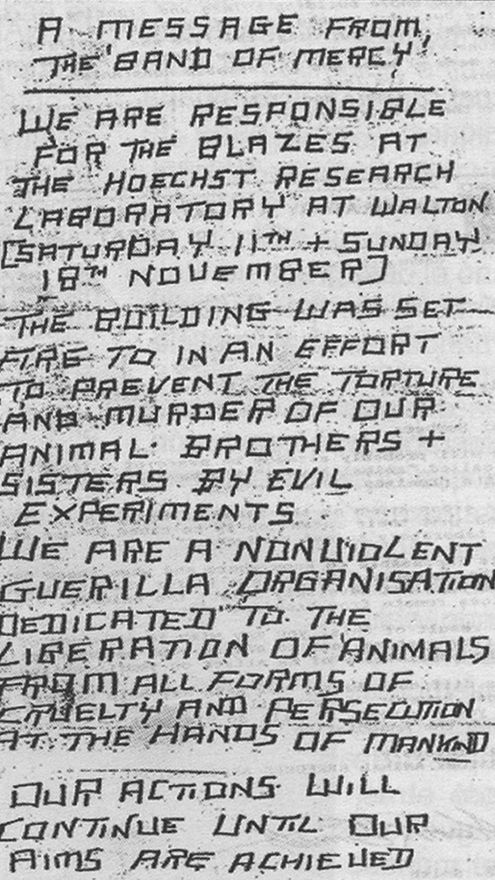 A MESSAGE FROM,
THE 'BAND OF MERCY'
WE ARE RESPONSIBLE
FOR THE BLAZES AT
THE HOECHST RESEARCH
LABORATORY AT WALTON
[SATURDAY 11TH + SUNDAY
18TH NOVEMBER]
THE BUILDING WAS SET
FIRE TO IN AN EFFORT
TO PREVENT THE TORTURE
AND MURDER OF OUR
ANIMAL BROTHERS +
SISTERS BY EVIL
EXPERIMENTS
WE ARE A NONVIOLENT
GUERILLA ORGANISATION
DEDICATED TO THE
LIBERATION OF ANIMALS
FROM ALL FORMS OF
CRUELTY AND PERSECUTION
AT THE HANDS OF MANKIND
OUR ACTIONS WILL
CONTINUE UNTIL OUR
AIMS ARE ACHIEVED